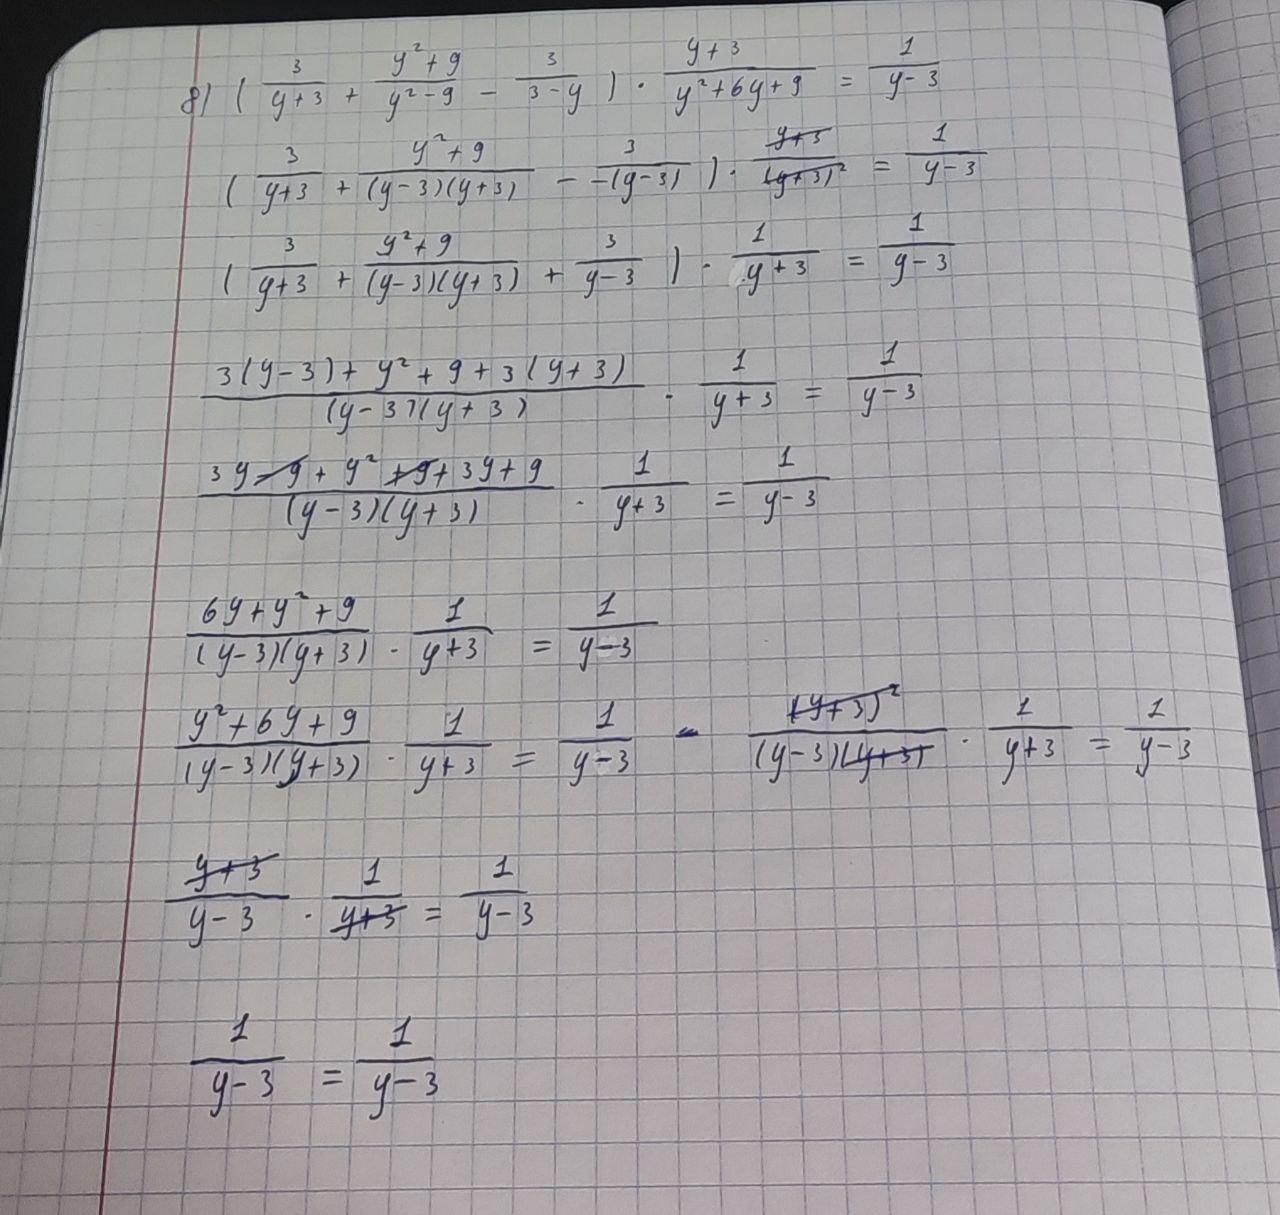 8) ( 3/(y+3) + (y²+9)/(y²-9) - 3/(3-y) ) · (y+3)/(y²+6y+9) = 1/(y-3)
( 3/(y+3) + (y²+9)/((y-3)(y+3)) - 3/(-(y-3)) ) · (y+3)/(y+3)² = 1/(y-3)
( 3/(y+3) + (y²+9)/((y-3)(y+3)) + 3/(y-3) ) · 1/(y+3) = 1/(y-3)
(3(y-3) + y² + 9 + 3(y+3))/((y-3)(y+3)) · 1/(y+3) = 1/(y-3)
(3y-9 + y² +9 + 3y + 9)/((y-3)(y+3)) · 1/(y+3) = 1/(y-3)
(6y+y²+9)/((y-3)(y+3)) · 1/(y+3) = 1/(y-3)
(y²+6y+9)/((y-3)(y+3)) · 1/(y+3) = 1/(y-3) - (y+3)²/((y-3)(y+3)) · 1/(y+3) = 1/(y-3)
(y+3)/(y-3) · 1/(y+3) = 1/(y-3)
1/(y-3) = 1/(y-3)